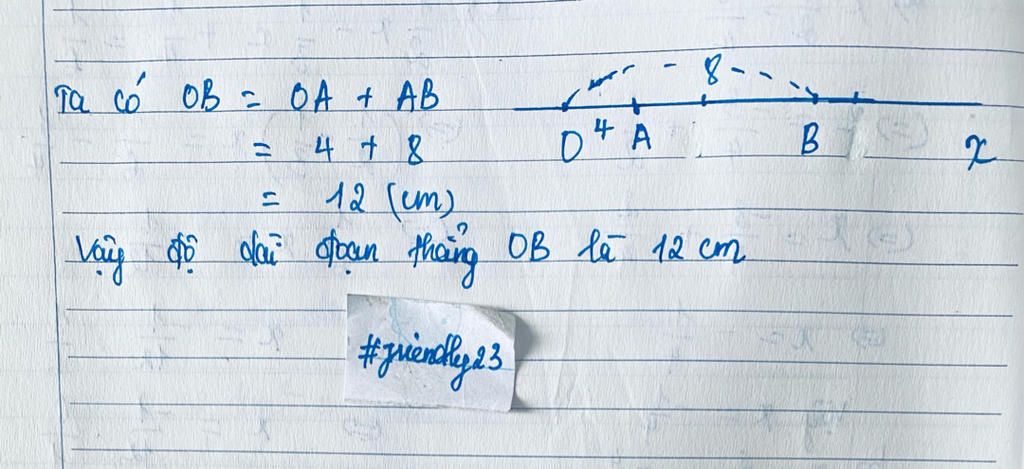 Ta có OB = OA + AB
= 4 + 8
= 12 (cm)
Vậy độ dài đoạn thẳng OB là 12 cm
8
O 4 A B x
#friendly23